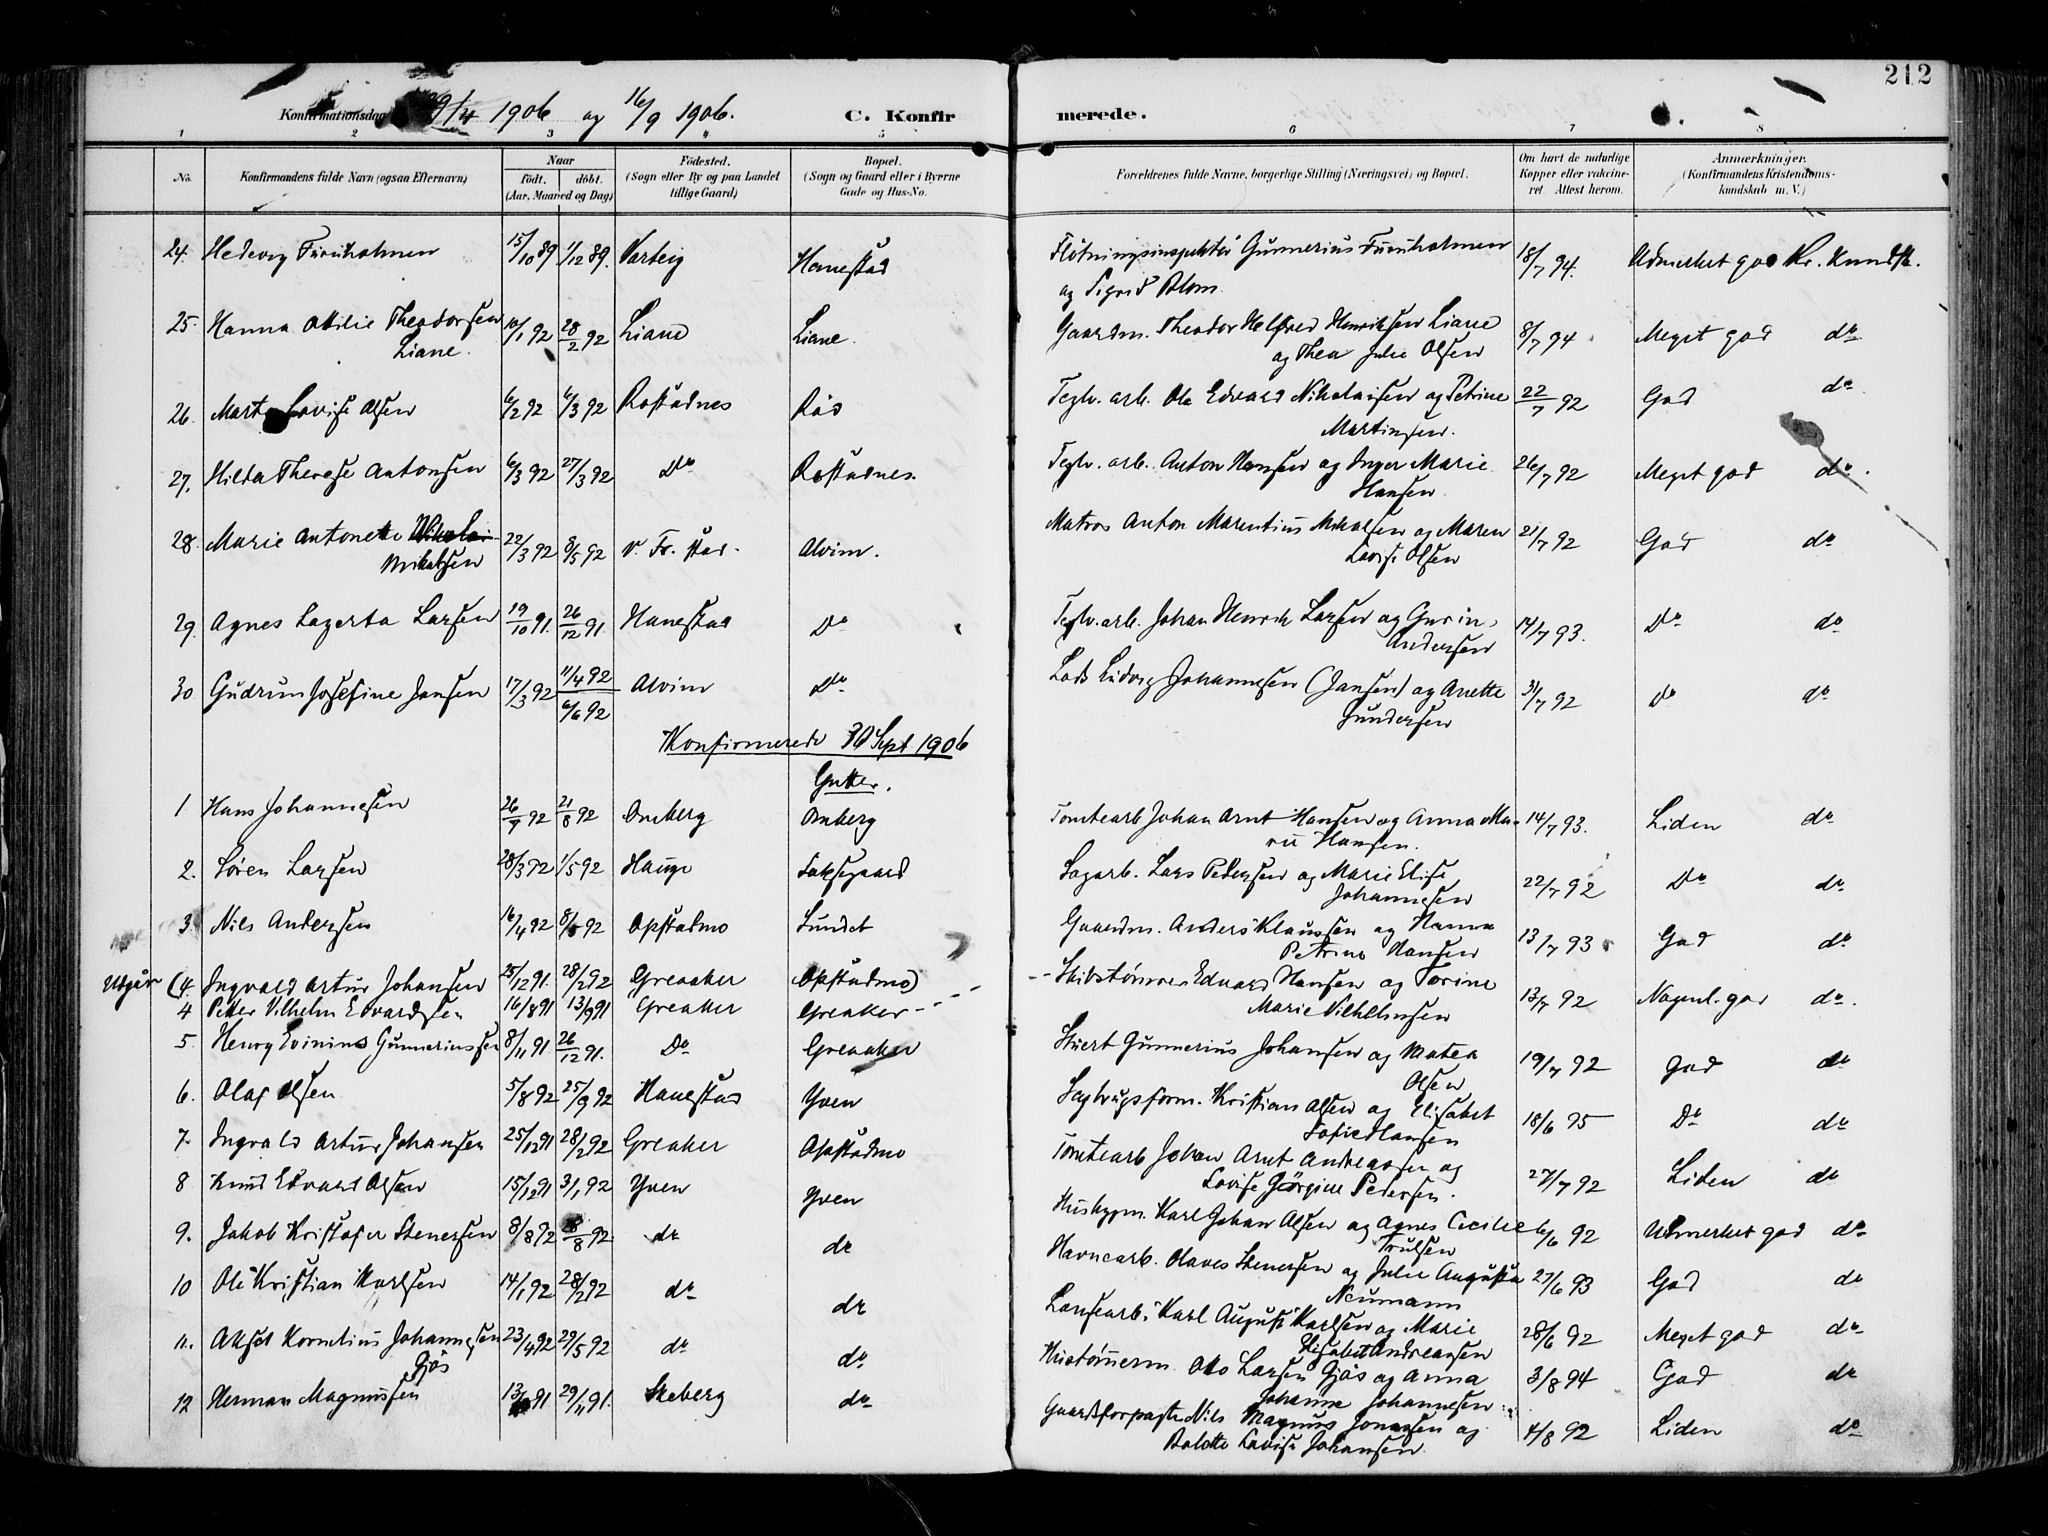 212
Konfirmationsdag 29/4 1906 og 16/9 1906. C. Konfirmerede.
1 2 3 4 5 6 7 8
No. Konfirmandens fulde Navn (ogsaa Efternavn) Naar født. døbt. (Aar, Maaned og Dag) Fødested. (Sogn eller By og paa Landet tillige Gaard) Bopæl. (Sogn og Gaard eller i Byerne Gade og Hus-No. Forældrenes fulde Navne, borgerlige Stilling (Næringsvei) og Bopæl. Om havt de naturlige Kopper eller vakcineret. Attest herom. Anmærkninger. (Konfirmandens Kristendomskundskab m. V.)
24. Hedevig Furuholmen 15/10 89 1/12 89. Varteig Hanestad Fløtningsinspektør Gunnerius Furuholmen 18/7 94. Udmerket god Kr. kundsk.
og Sigrid Blom
25. Hanna Otilie Theodorsen 10/1 92 28/2 92 Liane Liane. Gaardm. Theodor Helfred Henriksen Liane 8/7 94 Meget god do
Liane. og Thea Julie Olsen
26. Marta Lovise Olsen 6/2 92 6/3 92 Rostadnes Røs Teglv. arb. Ole Edvard Nikolaisen og Petrine 22/7 92 God do
Martinsen.
27. Hilda Therese Antonsen 6/3 92 27/3 92 Do Rostadnes. Teglv. arb. Anton Hansen og Inger Marie 26/7 92 Meget god do.
Hansen
28. Marie Antonette Nikolai- 22/3 92 8/5 92 v. Fr. stad. Alvim. Matros Anton Marentius Mikalsen og Maren 21/7 92 God do
Mikalsen Lovise Olsen
29. Agnes Lagerta Larsen 19/10 91. 26/12 91. Hanestad Do Teglv. arb. Johan Henrik Larsen og Gurin 14/7 93. Do do
Andersen
30 Gudrun Josefine Jansen 17/3 92 11/4 92 Alvim Do Lods Ludvig Johannesen (Jansen) og Anette 31/7 92 Do do
6/6 92 Gundersen
Konfirmerede 30 Sept 1906
Gutter.
1 Hans Johannesen 26/7 92 21/8 92 Omberg Omberg Tomtearb Johan Arnt Hansen og Anna Ma- 14/7 93. Liden do
rie Hansen.
2. Søren Larsen 28/3 92 1/5 92 Hauge Taksegaard Sagarb. Lars Pedersen og Marie Elise 22/7 92 Do do
Johannesen
3. Nils Andersen 16/4 92 8/5 92 Opstadmo Sundet Gaardm. Anders Klaussen og Hanna 13/7 93 God do
Petrine Hansen
Udgår (4. Ingvald Artur Johansen 25/12 91. 28/2 92 Greaaker Opstadmo)
4 Petter Vilhelm Edvardsen 16/8 91 13/9 91 Greaker Greaker Skibstømrer Edvard Hansen og Torine 13/7 92 Nogenl. god do.
Marie Vilhelmsen
5. Henry Evinius Gunneriussen 8/11 91 26/12 91. Do Greaaker Stuert Gunnerius Johansen og Matea 19/7 92 God do
Olsen
6. Olaf Olsen 5/8 92 25/9 92 Hanestad Yven Sagbrugsform. Kristian Olsen og Elisabet 18/6 95 Do do
Sofie Hansen
7. Ingvald Artur Johansen 25/12 91 28/2 92 Greaker Opstadmo Tomtearb Johan Arnt Andreassen og 27/7 92 Liden do
Lovise Jørgine Pedersen.
8 Knud Edvard Olsen 15/12 91 3/1 92 Yven Yven Huskypm. Karl Johan Olsen og Agnes Cecilie 6/6 92 Udmerket god do
Trulsen
9. Jakob Kristofer Stenersen 8/8 92 28/8 92 do do Havnearb. Olaves Stenersen og Julie Augusta 27/6 93 God do
Neumann
10 Ole Kristian Karlsen 14/1 92 28/2 92 do do Lonsearb. Karl August Karlsen og Marie 28/6 92 Meget god do
Elisabet Andreassen
11. Aksel Kornelius Johannesen 23/4 92 29/5 92 do do Hustømerm. Otto Larsen Gjøs og Anna 3/8 94 God do
Gjøs Johanne Johannesen
12 Herman Magnussen 13/ 91 29/11 91. Skeberg do Gaardsforpagter Nils Magnus Jonassen og 4/8 92 Liden do
Bolette Lovise Johansen